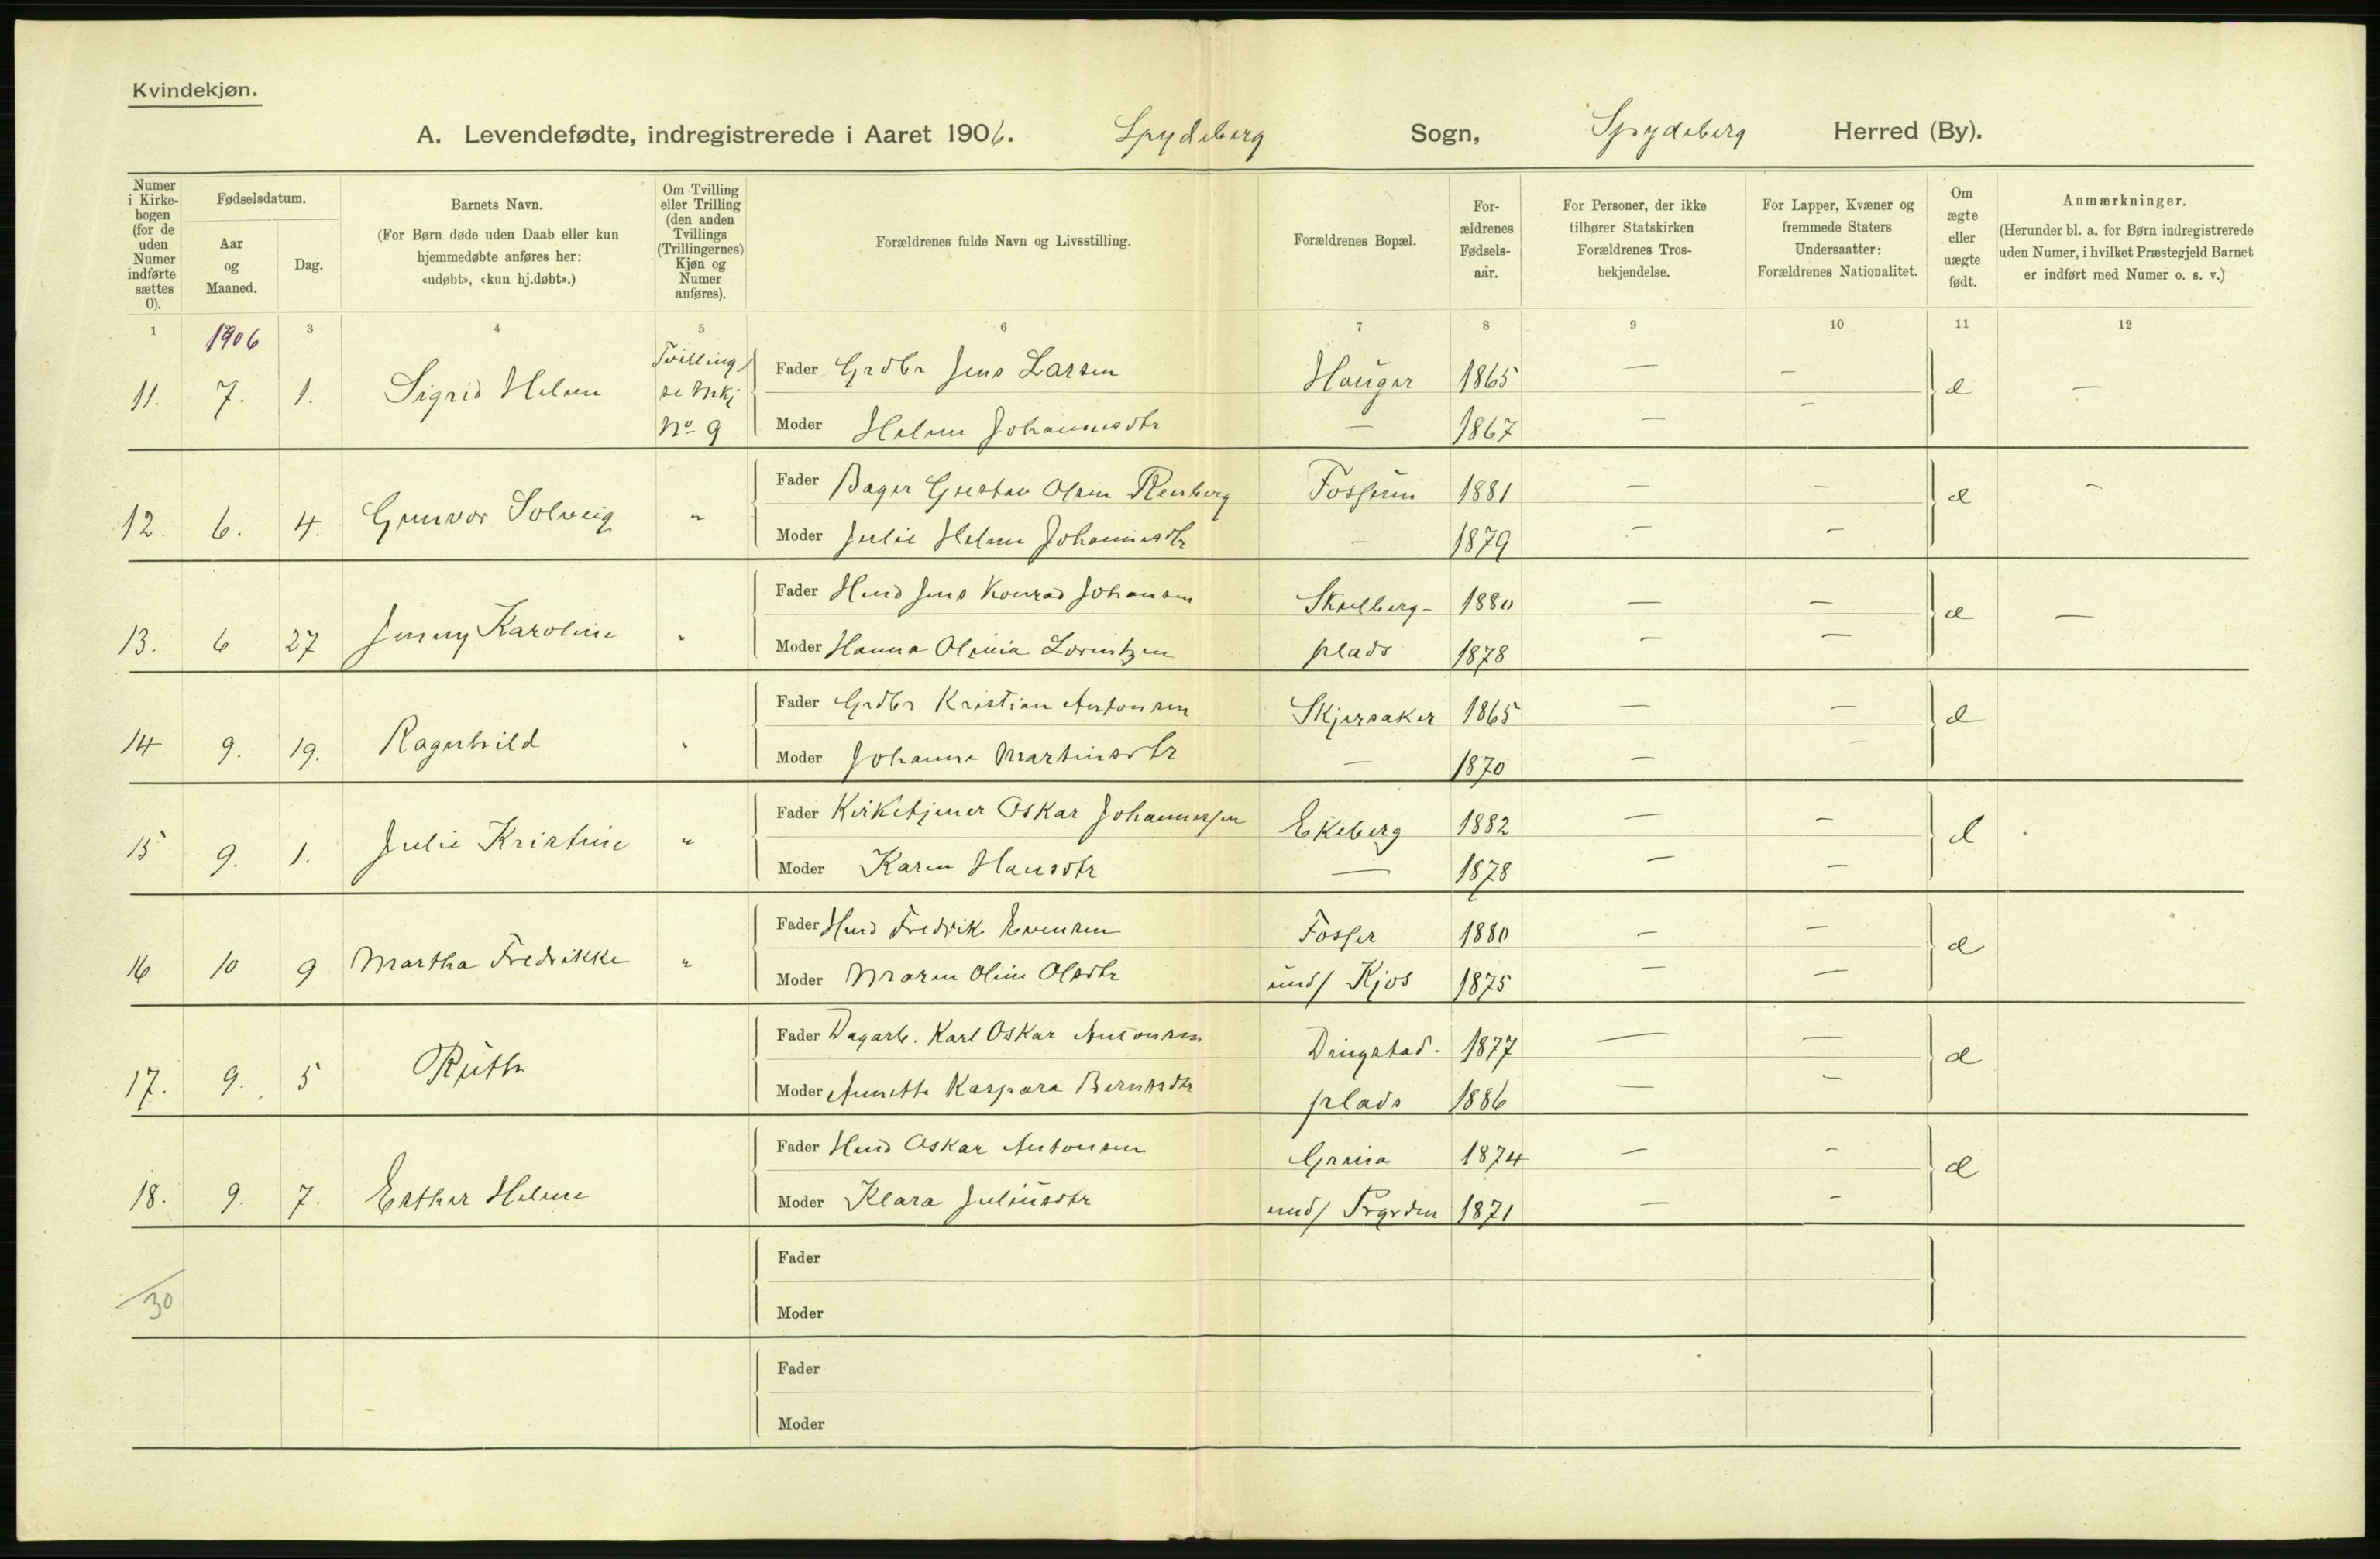 Kvindekjøn.
A. Levendefødte, indregistrerede i Aaret 1906. Spydeberg Sogn, Spydeberg Herred (By).
Numer i Kirkebogen (for de uden Numer indførte sættes 0).
Fødselsdatum.
Aar og Maaned.
Dag.
Barnets Navn.
(For Børn døde uden Daab eller kun hjemmedøbte anføres her: «udøbt», «kun hj.døbt».)
Om Tvilling eller Trilling (den anden Tvillings (Trillingernes) Kjøn og Numer anføres).
Forældrenes fulde Navn og Livsstilling.
Forældrenes Bopæl.
Forældrenes Fødselsaar.
For Personer, der ikke tilhører Statskirken Forældrenes Trosbekjendelse.
For Lapper, Kvæner og fremmede Staters Undersaatter: Forældrenes Nationalitet.
Om ægte eller uægte født.
Anmærkninger.
(Herunder bl. a. for Børn indregistrerede uden Numer, i hvilket Præstegjeld Barnet er indført med Numer o. s. v.)
1 3 4 5 6 7 8 9 10 11 12
1906
11. 7. 1. Sigrid Helene Tvilling se Mkj No 9 Fader Grdbr Jens Larsen Hauger 1865 — — æ —
Moder Helene Johannesdtr — 1867 — —
12. 6. 4. Gunvor Solveig " Fader Bager Gustav Olsen Renberg Fossum 1881 — — æ —
Moder Julie Helene Johannesdtr — 1879 — —
13. 6 27 Jenny Karoline " Fader Husd Jens Konrad Johansen Skulberg- 1880 — — æ —
Moder Hanna Olivia Lorentzen plads 1878 — —
14 9. 19. Ragnhild " Fader Grdbr Kristian Antonsen Skjersaker 1865 — — æ
Moder Johanne Martinsdtr — 1870 — —
15 9. 1. Julie Kristine " Fader Kirketjener Oskar Johannessen Ekeberg 1882 — — æ
Moder Karen Hansdtr — 1878 — —
16 10 9 Martha Fredrikke " Fader Husd Fredrik Evensen Fosser 1880 — — æ
Moder Maren Oline Olsdtr und/ Kjos 1875 — —
17. 9. 5 Ruth Fader Dagarb. Karl Oskar Antonsen Dingstad- 1877 — — æ
Moder Annette Kaspara Berntsdtr plads 1886 — —
18. 9. 7. Esther Helene Fader Husd Oskar Antonsen 1874 — — æ
Moder Klara Juliusdtr und/ 1871 — —
Fader
30
Moder
Fader
Moder